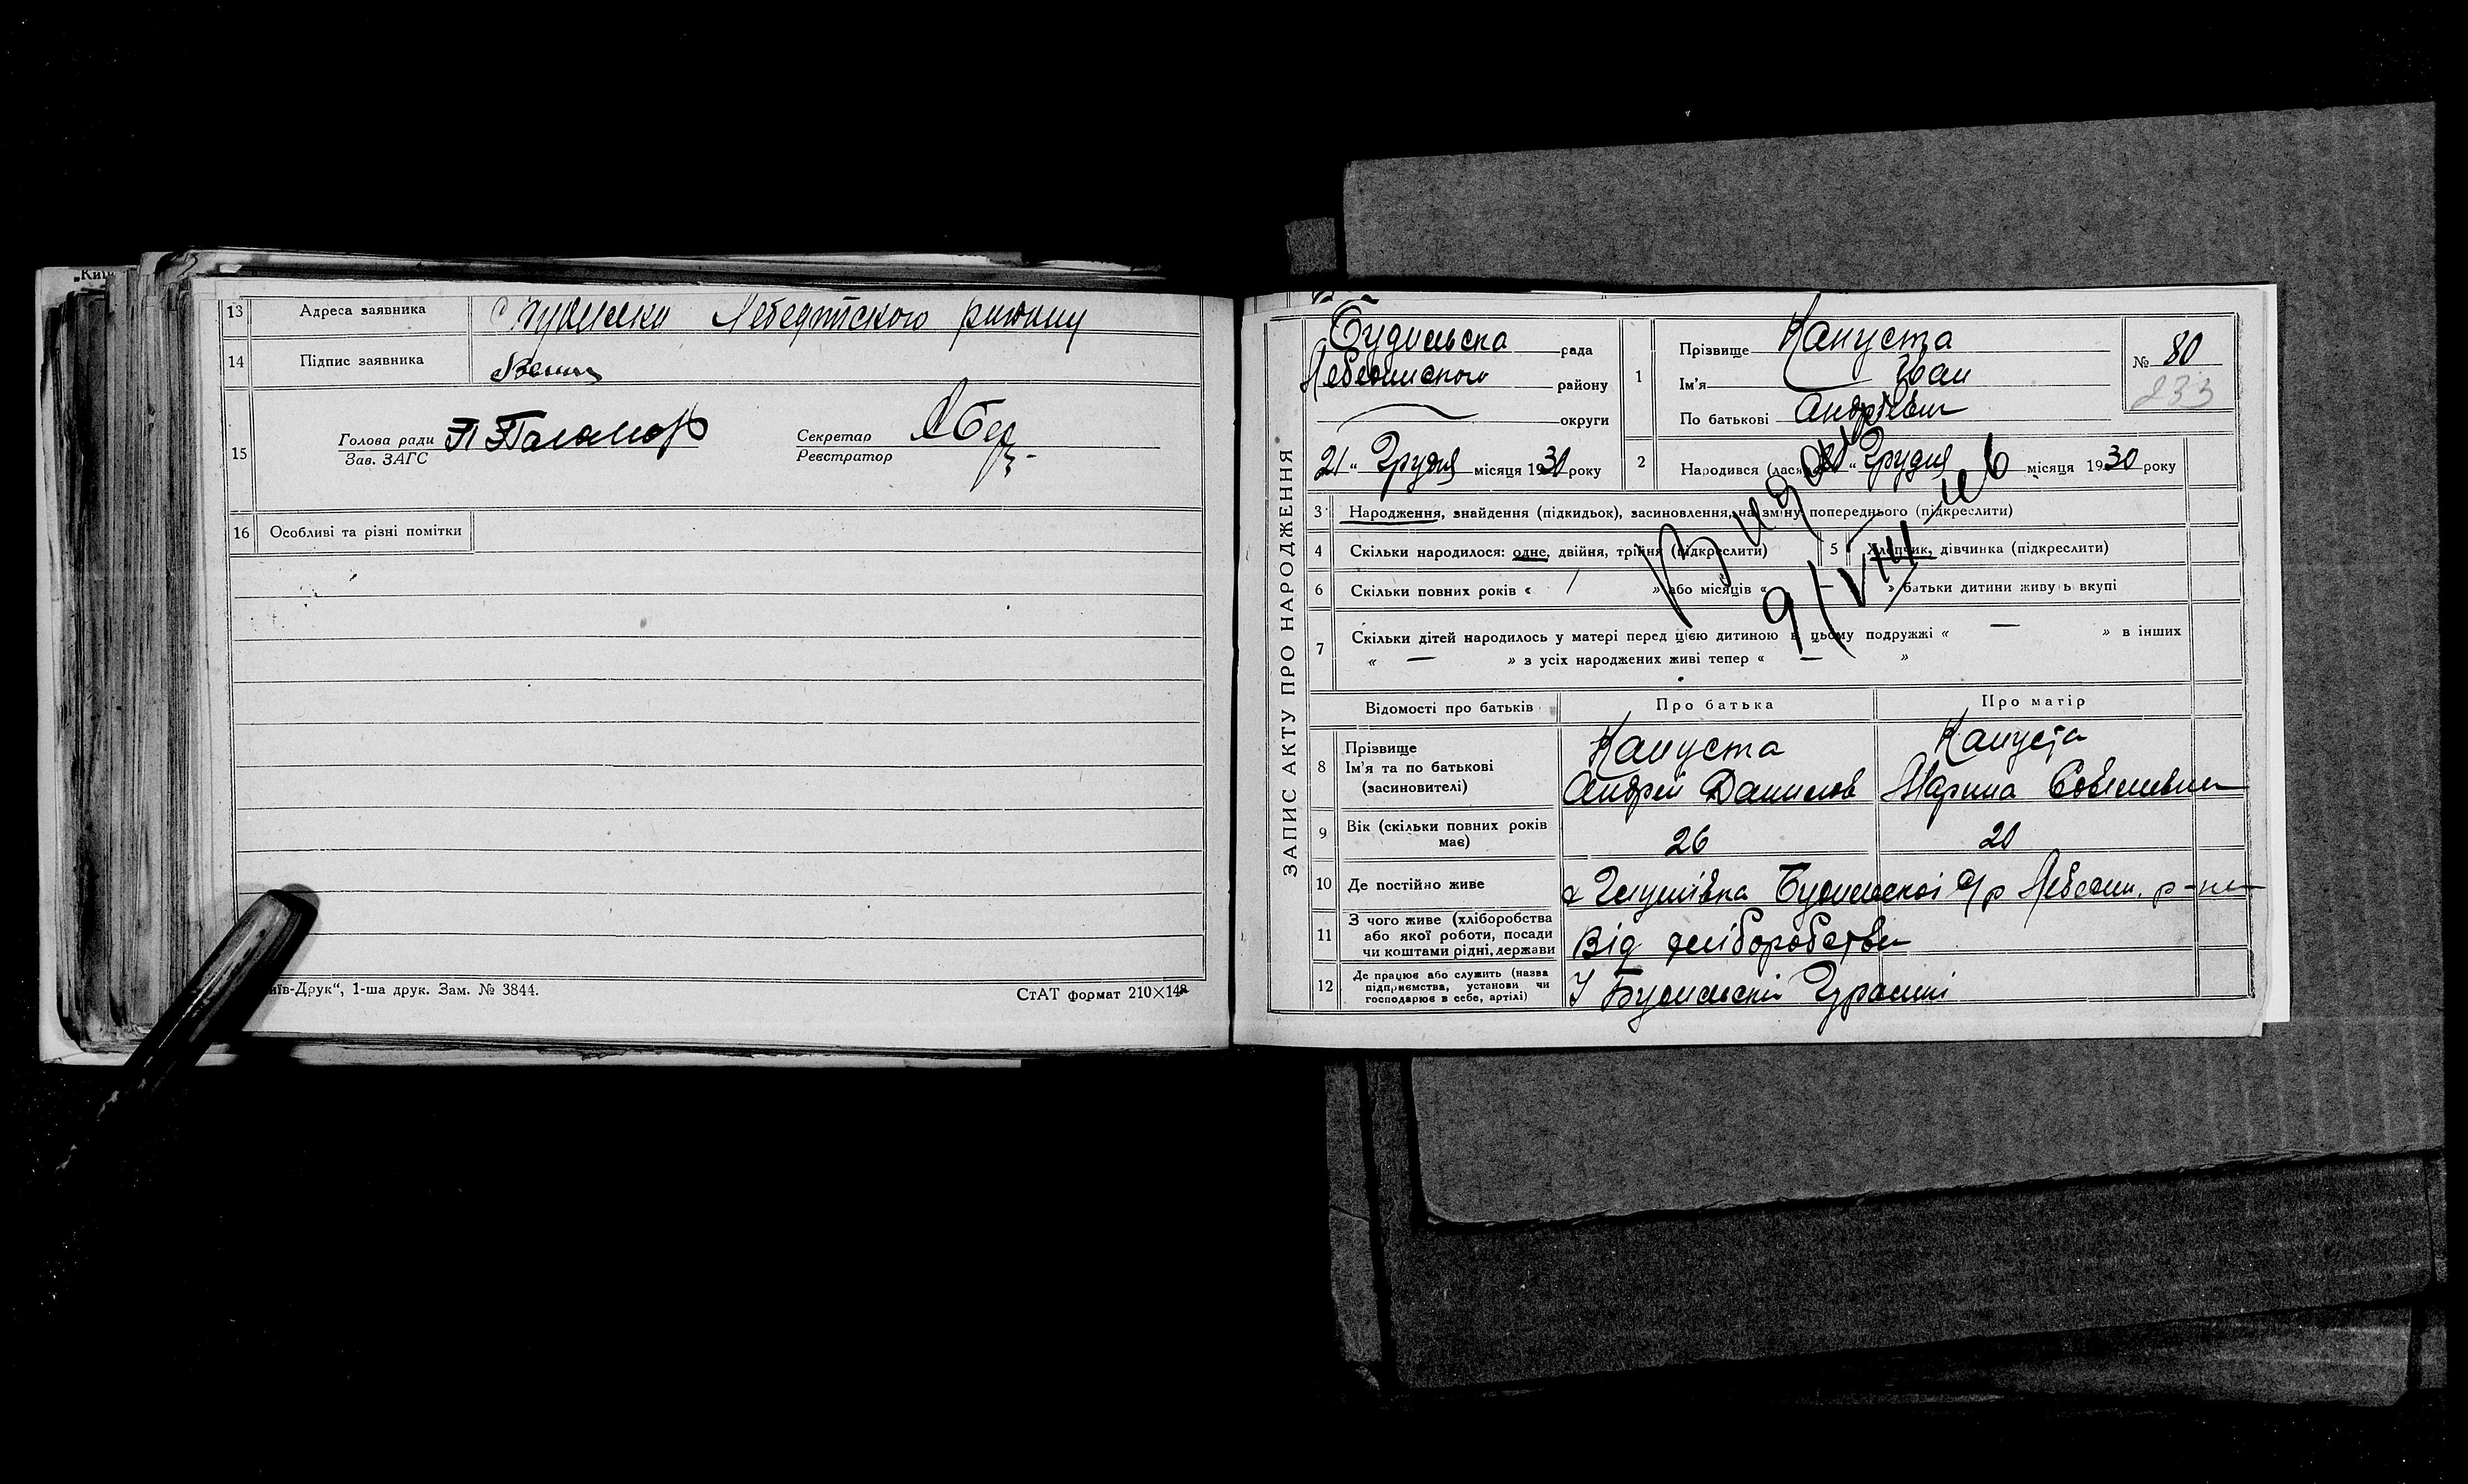 13 Адреса заявника с Будилка Лебединского району
14 Підпис заявника
15 Голова ради П Паламар Секретар
Зав. ЗАГС Реєстратор
16 Особливі та різні помітки
їв-Друк“, 1-ша друк. Зам. № 3844. СтАТ формат 210×148
ЗАПИС АКТУ ПРО НАРОДЖЕННЯ
Будильська рада
Лебединського району
округи
21 „ Грудня місяця 1930 року
1 Прізвище Капуста
Ім'я Іван
По батькові Андрієвич
№ 80
233
2 Народився (лася) „ Грудня місяця 1930 року
3 Народження, знайдення (підкидьок), засиновлення, на зміну попереднього (підкреслити)
4 Скільки народилося: одне, двійня, трійня (підкреслити) 5 Хлопчик, дівчинка (підкреслити)
6 Скільки повних років « / » або місяців « – » батьки дитини живуть вкупі
7 Скільки дітей народилось у матері перед цією дитиною в цьому подружжі « — » в інших
« — » з усіх народжених живі тепер « — »
9/VIII 46
Відомості про батьків Про батька Про матір
8 Прізвище Капуста Капуста
Ім'я та по батькові
(засиновителі) Андрей Данилов Марина
9 Вік (скільки повних років має) 26 20
10 Де постійно живе Будильської с/р Лебедин. р-на
11 З чого живе (хліборобства
або якої роботи, посади
чи коштами рідні, держави Від хліборобства
12 Де працює або служить (назва
підприємства, установи чи
господарює в себе, артілі) У Будильскій